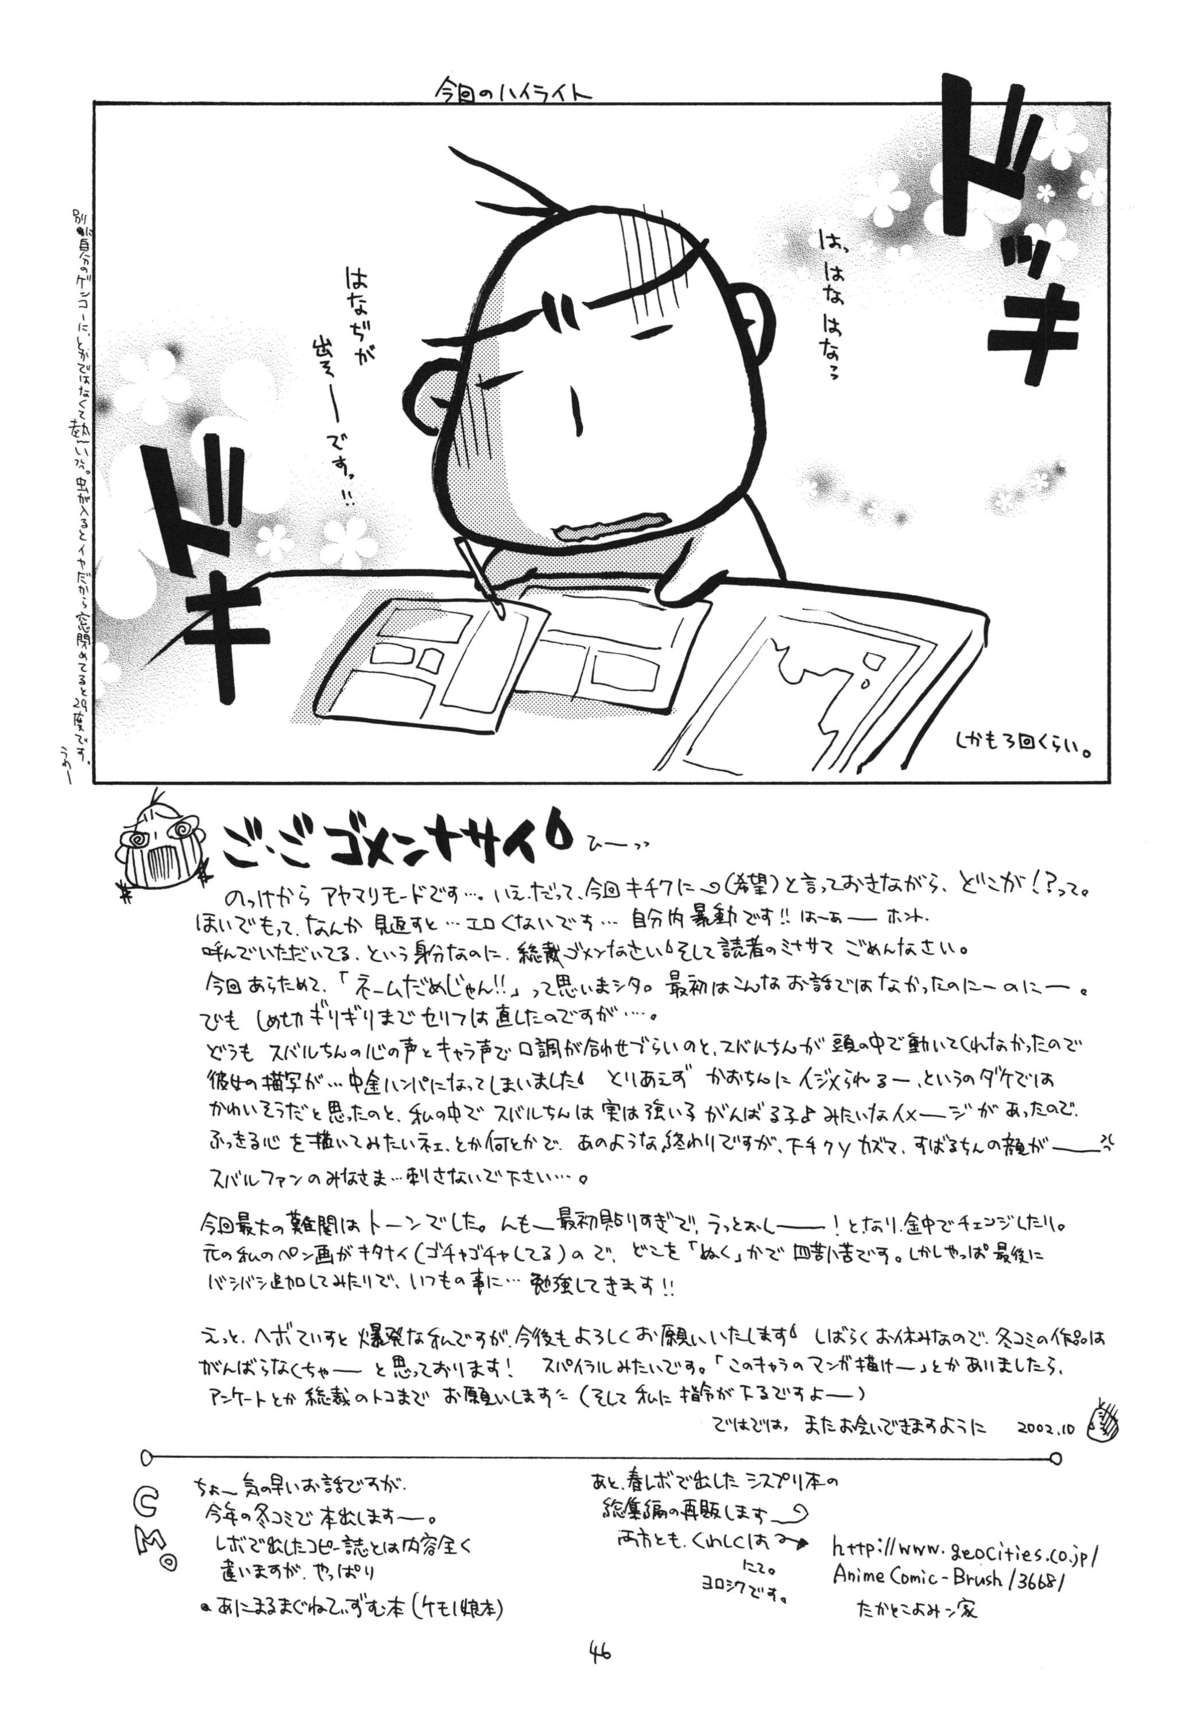 今回のハイライト
ドッキ
はっ、はなはなぢ
はなぢが
出そーーです。!!
ドキ
しかも3回くらい。
別に自分のゲンコーに、とかではなくて熱ーいから。虫が入るとイヤだから窓閉めてると29度です。
うふー
ご・ごゴメンナサイ
ひーっっ
のっけからアヤマリモードです…。いえ、だって、今回キチクに〜(希望)と言っておきながら、どこが!?って。
ほいでもって、なんか見返すと…エロくないです…自分内暴動です!!はーぁーホント、
呼んでいただいてる、という身分なのに、総裁ゴメンなさい そして読者のミナサマごめんなさい。
今回あらためて、「ネームだめじゃん!!」って思いまシタ。最初はこんなお話ではなかったのにーのにー。
でもしめ切ギリギリまでセリフは直したのですが…。
どうもスバルちんの心の声とキャラ声で口調が合わせづらいのと、スバルちんが頭の中で動いてくれなかったので
彼女の描写が…中途ハンパになってしまいました とりあえずかおちんにイジメられるー、というのダケでは
かわいそうだと思ったのと、私の中でスバルちんは実は強いろがんばる子よみたいなイメージがあったので、
ふっきる心を描いてみたいネェ、とか何とかで、あのような終わりですが、下チクソカズマ、すばるちんの顔がーー
スバルファンのみなさま…刺さないで下さい…。
今回最大の難関はトーンでした。んもー最初貼りすぎで、うっとおしーー!となり、途中でチェンジしたり。
元の私のペン画がキタナイ(ゴチャゴチャしてる)ので、どこを「ぬく」かで四苦八苦です。しかしやっぱ最後に
バシバシ追加してみたりで、いつもの事に…勉強してきます!!
えっと、ヘボていすと爆発な私ですが、今後もよろしくお願いいたします しばらくお休みなので、冬コミの作品は
がんばらなくちゃーと思っております! スパイラルみたいです。「このキャラのマンガ描けー」とかありましたら、
アンケートとか総裁のトコまでお願いします(そして私に指令が下るですよー)
ではでは、またお会いできますように 2002.10
CM。
ちょー気の早いお話ですが、
今年の冬コミで本出しますー。
レボで出したコピー誌とは内容全く
違いますが、やっぱり
・あにまるまぐねてぃずむ本(ケモノ娘本)
あと、春レボで出したシスプリ本の
総集編の再販します〜
両方とも、くわしくは→
http://www.geocities.co.jp/
AnimeComic-Brush/3668/
たかとこよみン家
にて。
ヨロシクです。
46